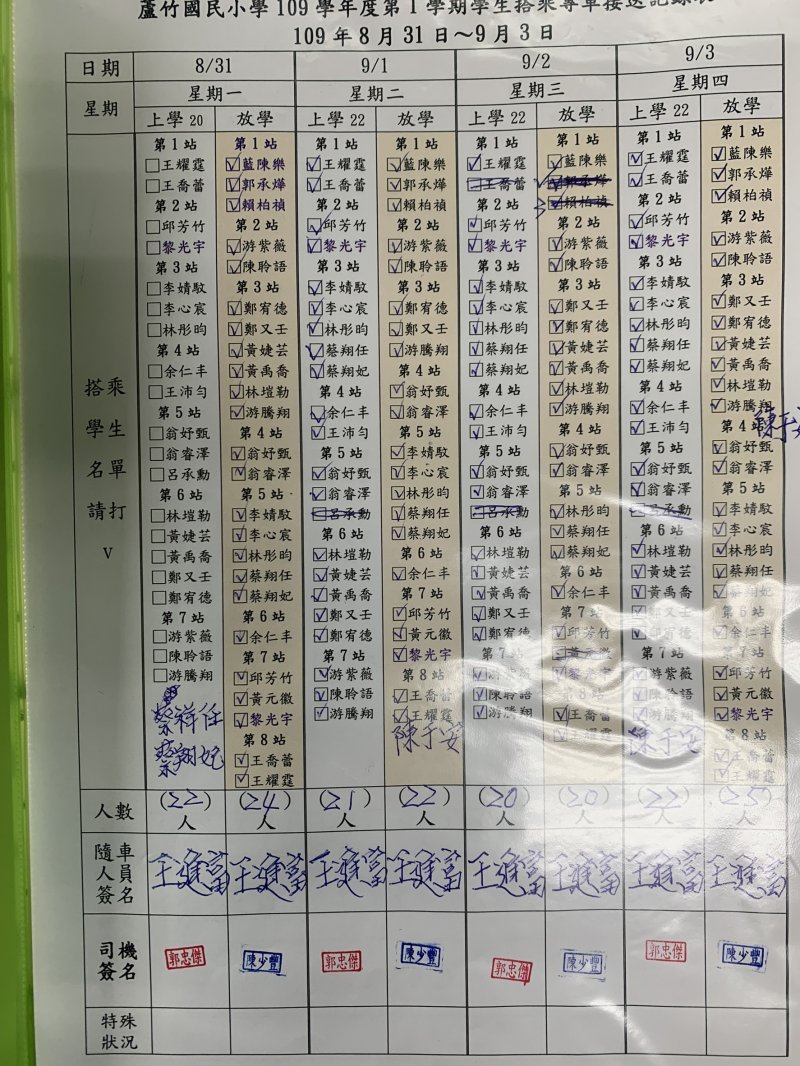 蘆竹國民小學 109 學年度第 1 學期學生搭乘專車接送記錄表
109 年 8 月 31 日～9 月 3 日
日期 8/31 9/1 9/2 9/3
星期 星期一 星期二 星期三 星期四
上學 20 放學 上學 22 放學 上學 22 放學 上學 22 放學
搭乘學生名單請打V
第 1 站
王耀霆
王喬蕾
第 2 站
邱芳竹
黎光宇
第 3 站
李婧馭
李心宸
林彤昀
第 4 站
余仁丰
王沛勻
第 5 站
翁妤甄
翁睿澤
呂承勳
第 6 站
林塏勒
黃婕芸
黃禹喬
鄭又壬
鄭宥德
第 7 站
游紫薇
陳聆語
游騰翔
蔡祥任
蔡翔妃
第 1 站
藍陳樂
郭承燁
賴柏禎
第 2 站
游紫薇
陳聆語
第 3 站
鄭宥德
鄭又壬
黃婕芸
黃禹喬
林塏勒
游騰翔
第 4 站
翁妤甄
翁睿澤
第 5 站
李婧馭
李心宸
林彤昀
蔡翔任
蔡翔妃
第 6 站
余仁丰
第 7 站
邱芳竹
黃元徽
黎光宇
第 8 站
王喬蕾
王耀霆
第 1 站
王耀霆
王喬蕾
第 2 站
邱芳竹
黎光宇
第 3 站
李婧馭
李心宸
林彤昀
蔡翔任
蔡翔妃
第 4 站
余仁丰
王沛勻
第 5 站
翁妤甄
翁睿澤
呂承勳
第 6 站
林塏勒
黃婕芸
黃禹喬
鄭又壬
鄭宥德
第 7 站
游紫薇
陳聆語
游騰翔
第 1 站
藍陳樂
郭承燁
賴柏禎
第 2 站
游紫薇
陳聆語
第 3 站
鄭宥德
鄭又壬
游騰翔
第 4 站
翁妤甄
翁睿澤
第 5 站
李婧馭
李心宸
林彤昀
蔡翔任
蔡翔妃
第 6 站
余仁丰
第 7 站
邱芳竹
黃元徽
黎光宇
第 8 站
王喬蕾
王耀霆
陳于安
第 1 站
王耀霆
王喬蕾
第 2 站
邱芳竹
黎光宇
第 3 站
李婧馭
李心宸
林彤昀
蔡翔任
蔡翔妃
第 4 站
余仁丰
王沛勻
第 5 站
翁妤甄
翁睿澤
呂承勳
第 6 站
林塏勒
黃婕芸
黃禹喬
鄭又壬
鄭宥德
第 7 站
游紫薇
陳聆語
游騰翔
第 1 站
藍陳樂
郭承燁
賴柏禎
第 2 站
游紫薇
陳聆語
第 3 站
鄭又壬
鄭宥德
黃婕芸
黃禹喬
林塏勒
游騰翔
第 4 站
翁妤甄
翁睿澤
第 5 站
林彤昀
蔡翔任
蔡翔妃
第 6 站
余仁丰
第 7 站
邱芳竹
黃元徽
黎光宇
第 8 站
王喬蕾
王耀霆
第 1 站
王耀霆
王喬蕾
第 2 站
邱芳竹
黎光宇
第 3 站
李婧馭
李心宸
林彤昀
蔡翔任
蔡翔妃
第 4 站
余仁丰
王沛勻
第 5 站
翁妤甄
翁睿澤
呂承勳
第 6 站
林塏勒
黃婕芸
黃禹喬
鄭又壬
鄭宥德
第 7 站
游紫薇
陳聆語
游騰翔
陳于安
第 1 站
藍陳樂
郭承燁
賴柏禎
第 2 站
游紫薇
陳聆語
第 3 站
鄭又壬
鄭宥德
黃婕芸
黃禹喬
林塏勒
游騰翔
第 4 站
翁妤甄
翁睿澤
第 5 站
李婧馭
李心宸
林彤昀
蔡翔任
蔡翔妃
第 6 站
余仁丰
第 7 站
邱芳竹
黃元徽
黎光宇
第 8 站
王喬蕾
王耀霆
人數 (22)人 (24)人 (21)人 (22)人 (20)人 (20)人 (22)人 (25)人
隨車人員簽名 王進富 王進富 王進富 王進富 王進富 王進富 王進富 王進富
司機簽名 郭忠傑 陳少豐 郭忠傑 陳少豐 郭忠傑 陳少豐 郭忠傑 陳少豐
特殊狀況